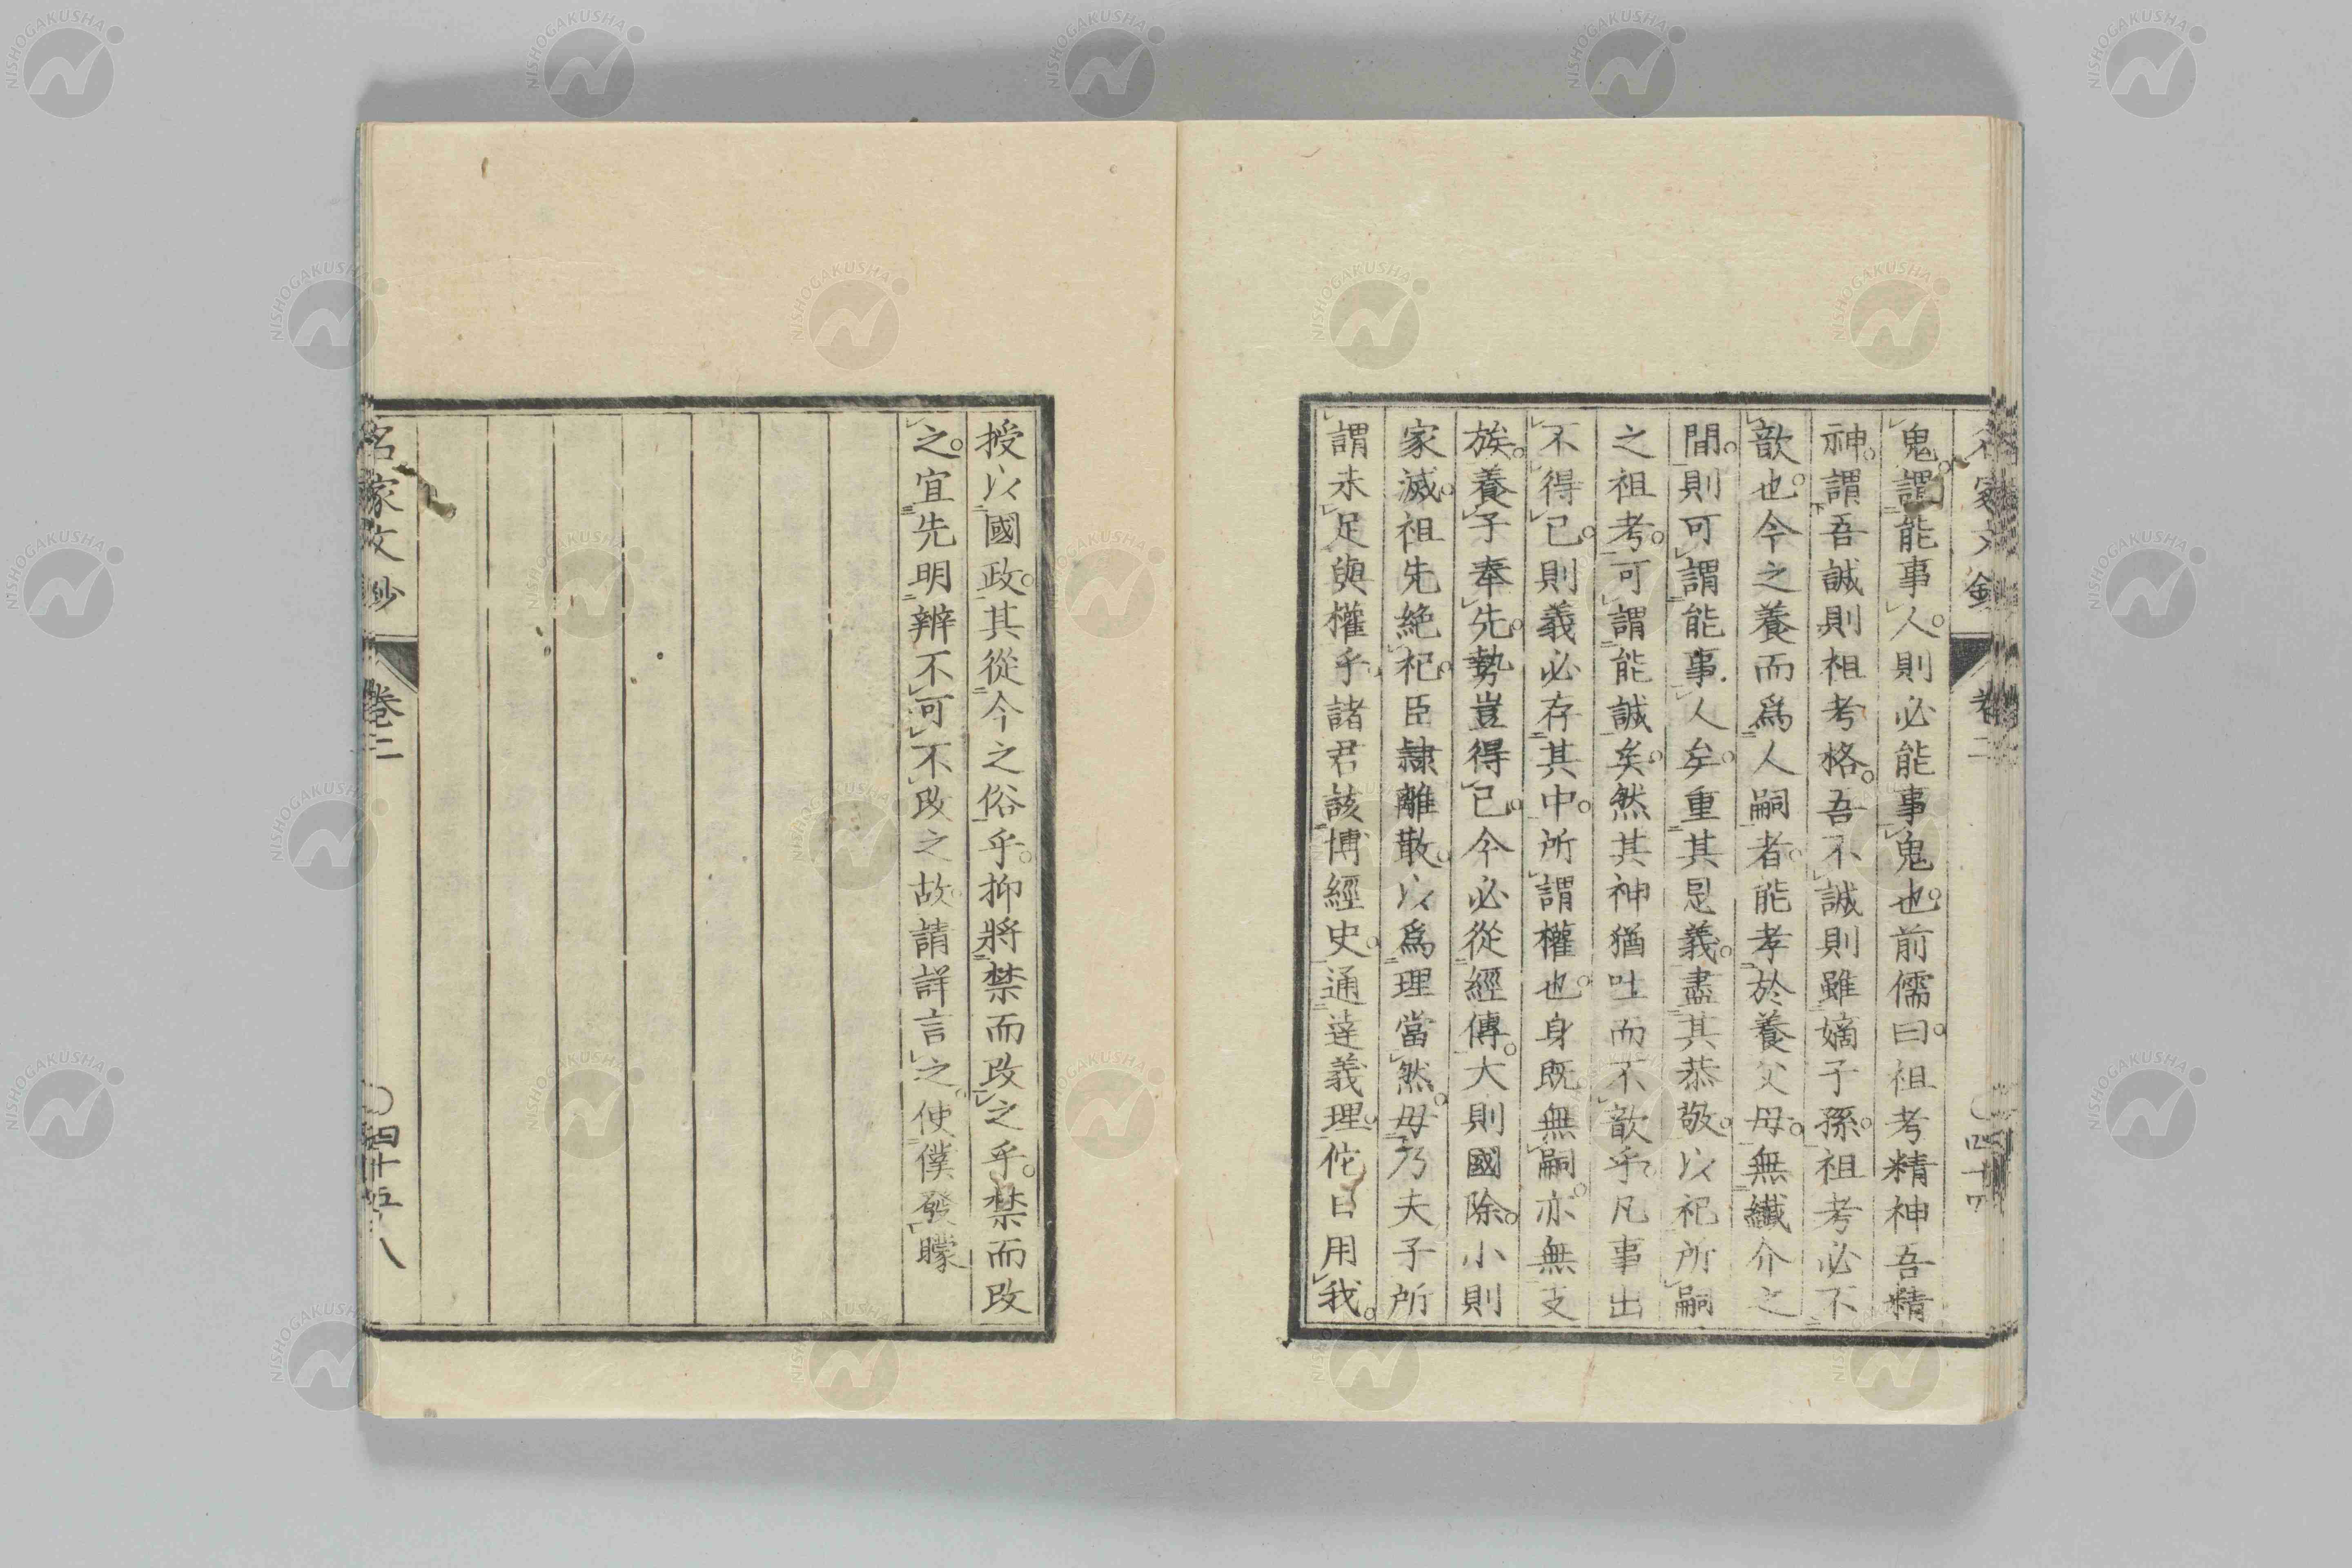 鬼。謂能事人。則必能事鬼也。前儒曰。祖考精神吾精
神。謂吾誠則祖考格。吾不誠則雖嫡子孫。祖考必不
歆也。今之養而爲人嗣者。能孝於養父母。無纖介之
間。則可謂能事人矣。重其恩義。盡其恭敬。以祀所嗣
之祖考。可謂能誠矣。然其神猶吐而不歆乎。凡事出
不得已。則義必存其中。所謂權也。身既無嗣。亦無支
族。養子奉先。勢豈得已。今必從經傳。大則國除。小則
家滅。祖先絶祀。臣隷離散。以爲理當然。毋乃夫子所
謂未足與權乎。諸君該博經史。通達義理。佗日用我。
名家文鈔
卷二
四十四
授以國政。其從今之俗乎。抑將禁而改之乎。禁而改
之。宜先明辨不可不改之故。請詳言之。使僕發矇
名家文鈔
卷二
〇四十五ノ八
NISHOGAKUSHA